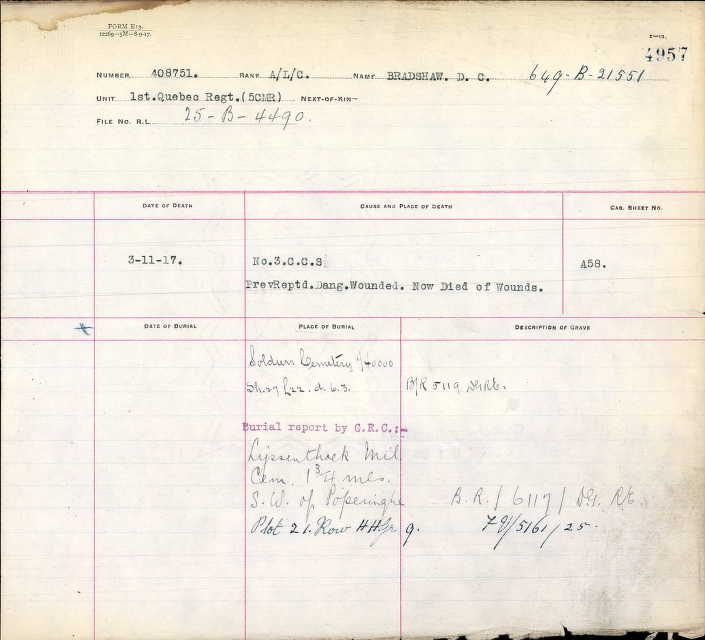 FORM E13.
12269—5M—8-9-17.
4957
NUMBER 408751. RANK A/L/C. NAME BRADSHAW. D. C. 649-B-21551
UNIT 1st.Quebec Regt.(5CMR) NEXT-OF-KIN—
FILE NO. R.L. 25-B-4490.
DATE OF DEATH CAUSE AND PLACE OF DEATH CAS. SHEET NO.
3-11-17. No.3.C.C.S A58.
PrevReptd.Dang.Wounded. Now Died of Wounds.
DATE OF BURIAL PLACE OF BURIAL DESCRIPTION OF GRAVE
Soldiers Cemetery 1/40000
Sh.27 L22.d.6.3. B/R 5119
Burial report by G.R.C.:-
Lijssenthoek Mil
Cem. 1 3/4 mls.
S.W. of Poperinghe B.R./6117/
Plot 21. Row HH. Gr 9. 79/5161/25.